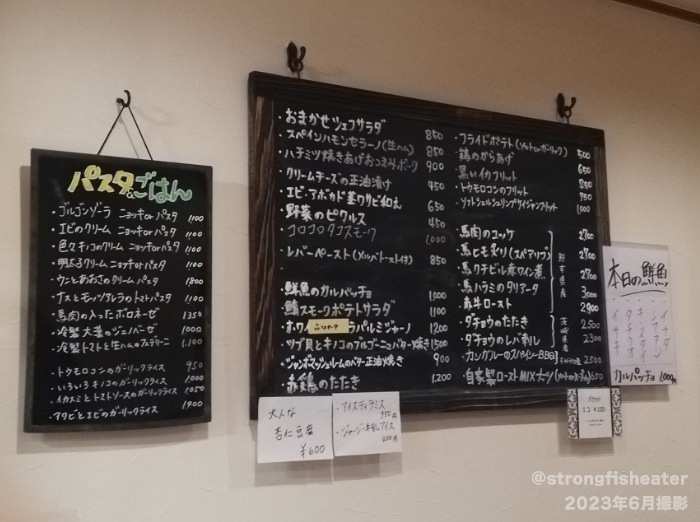 パスタ&ごはん
・ゴルゴンゾーラ ニョッキorパスタ 1100
・エビのクリーム ニョッキorパスタ 1100
・色々キノコのクリーム ニョッキorパスタ 1100
・明太子クリーム ニョッキorパスタ 1100
・ウニとあおさのクリームパスタ 1800
・ナスとモッツァレラのトマトパスタ 1100
・馬肉の入ったボロネーゼ 1350
・冷製 大葉のジェノベーゼ 1000
・冷製トマトと生ハムのフェデリーニ 1,100
・トウモロコシのガーリックライス 950
・いろいろキノコのガーリックライス 1000
・イカスミとトマトソースのガーリックライス 1050
・アサリとエビのガーリックライス 1,000
・おまかせシェフサラダ 850
・スペインハモンセラーノ(生ハム) 850
・ハチミツ焼きあげおつまみポーク 900
・クリームチーズの正油漬け 450
・エビ・アボカド茎ワサビ和え 650
・野菜のピクルス 450
・コロコロタコスモーク 1,000
・レバーペースト(メルバトースト付) 850
・鮮魚のカルパッチョ 1,000
・鯖スモークポテトサラダ 1100
・ホワイ ラパルミジャーノ 1200
・ツブ貝とキノコのブルゴーニュバター焼き 1500
・ジャンボマッシュルームのバター正油焼き 900
・赤鶏のたたき 1,200
・フライドポテト(ソルトorガーリック) 500
・鶏のからあげ 850
・黒いイカフリット 850
・トウモロコシのフリット 950
・ソフトシェルシュリンプケイジャンフリット 1000
・馬肉のユッケ 2,700
・馬ヒモ炙り(スペアリブ) 2,700
・馬クチビル赤ワイン煮 2,700
・馬ハラミのタリアータ 3,000
・赤牛ロースト 2900
熊本県産
・ダチョウのたたき 2,500
・ダチョウのレバ刺し 2300
茨城県産
・カンガルーのスパイシーBBQ 2500
・自家製ローストMIXナッツ 650
本日の鮮魚
イナダ
カルパッチョ 1,000円
大人な
杏仁豆腐
¥600
・アイスティラミス
750円
・ジャージー牛乳アイス
400円
バケット
1コ ¥100-
@strongfisheater
2023年6月撮影